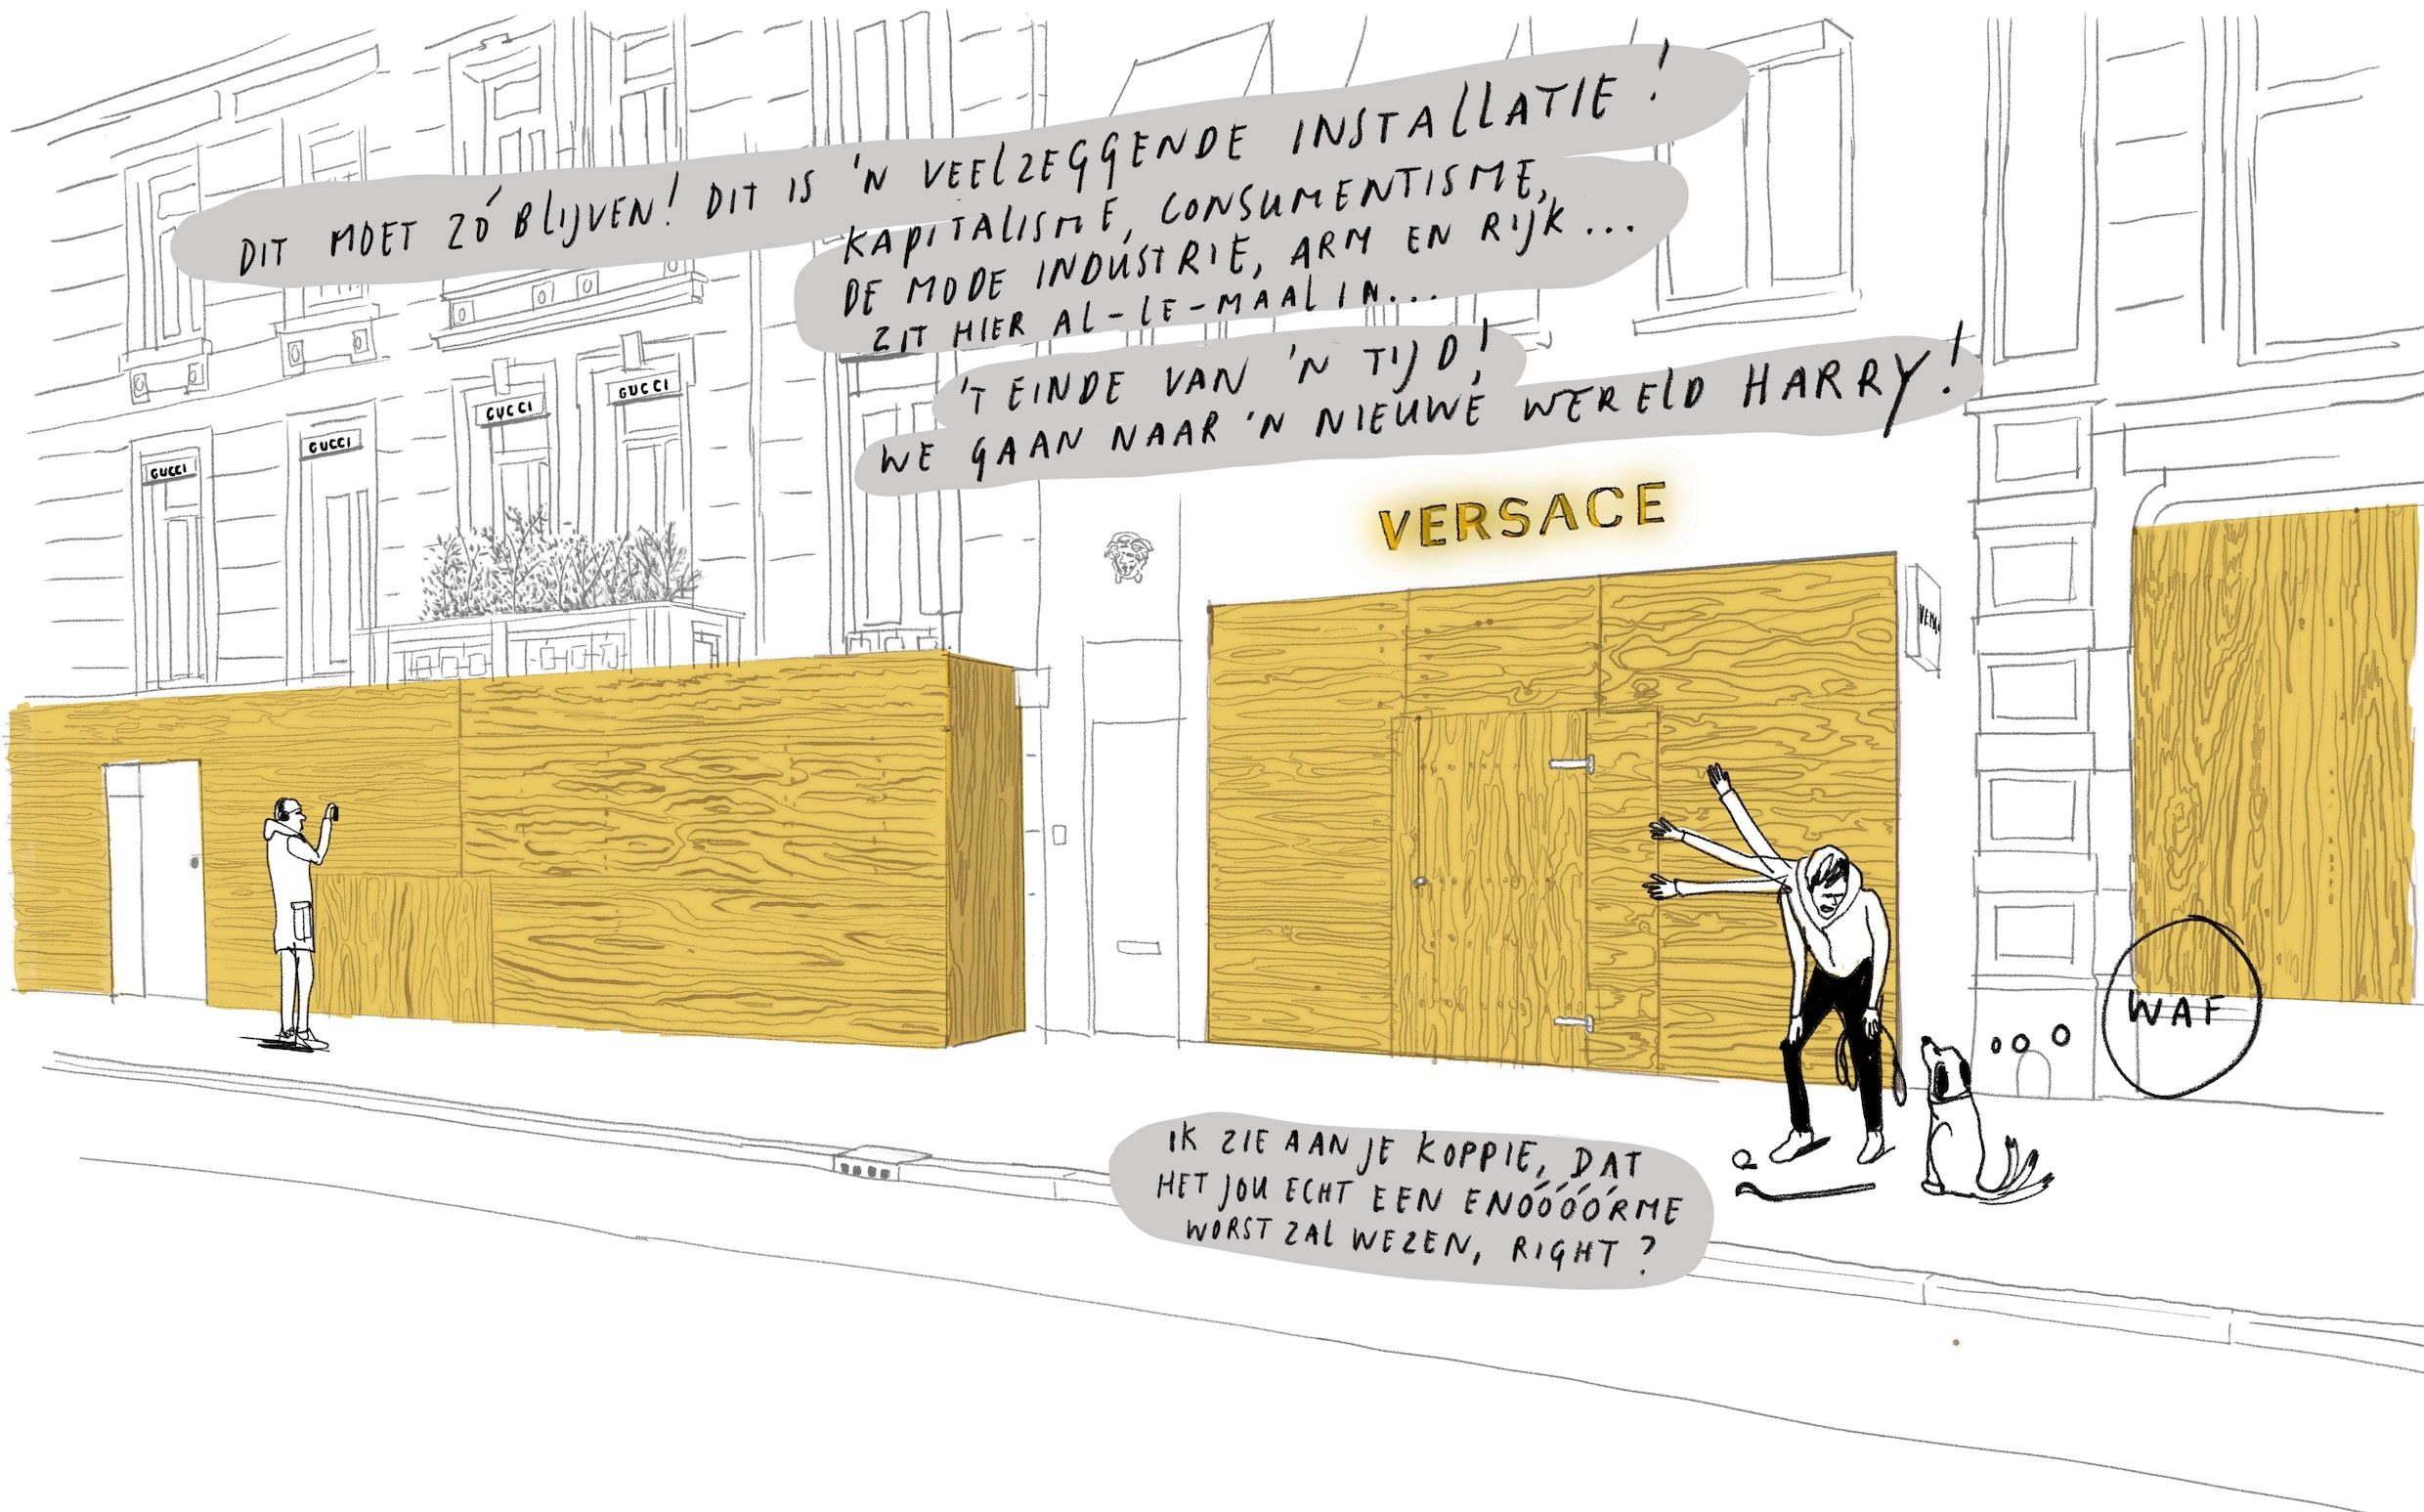 DIT MOET ZÓ BLIJVEN! DIT IS 'N VEELZEGGENDE INSTALLATIE!
KAPITALISME, CONSUMENTISME,
DE MODE INDUSTRIE, ARM EN RIJK...
ZIT HIER AL-LE-MAAL IN...
'T EINDE VAN 'N TIJD!
WE GAAN NAAR 'N NIEUWE WERELD HARRY!
GUCCI
GUCCI
GUCCI
GUCCI
VERSACE
WAF
IK ZIE AAN JE KOPPIE, DAT
HET JOU ECHT EEN ENÓÓÓÓRME
WORST ZAL WEZEN, RIGHT?